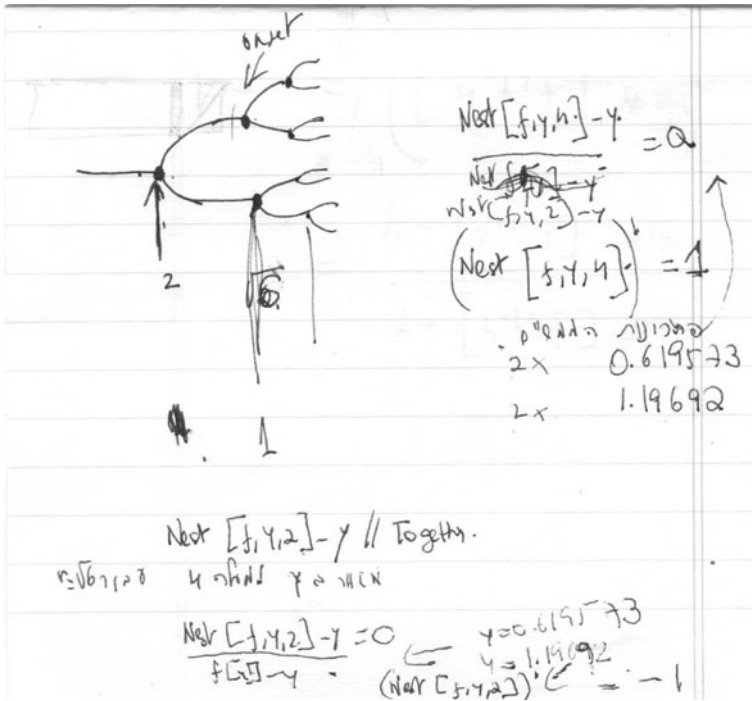 onset
Nest[f,y,4]-y = 0
Nest[f,y,2]-y
2
√6
(Nest [f,y,4])' = 1
2x 0.619573
2x 1.19692
1
Nest [f,y,2]-y // Together.
Nest [f,y,2]-y = 0
f[y]-y
y=0.619573
y=1.19692
(Nest [f,y,2])' = -1